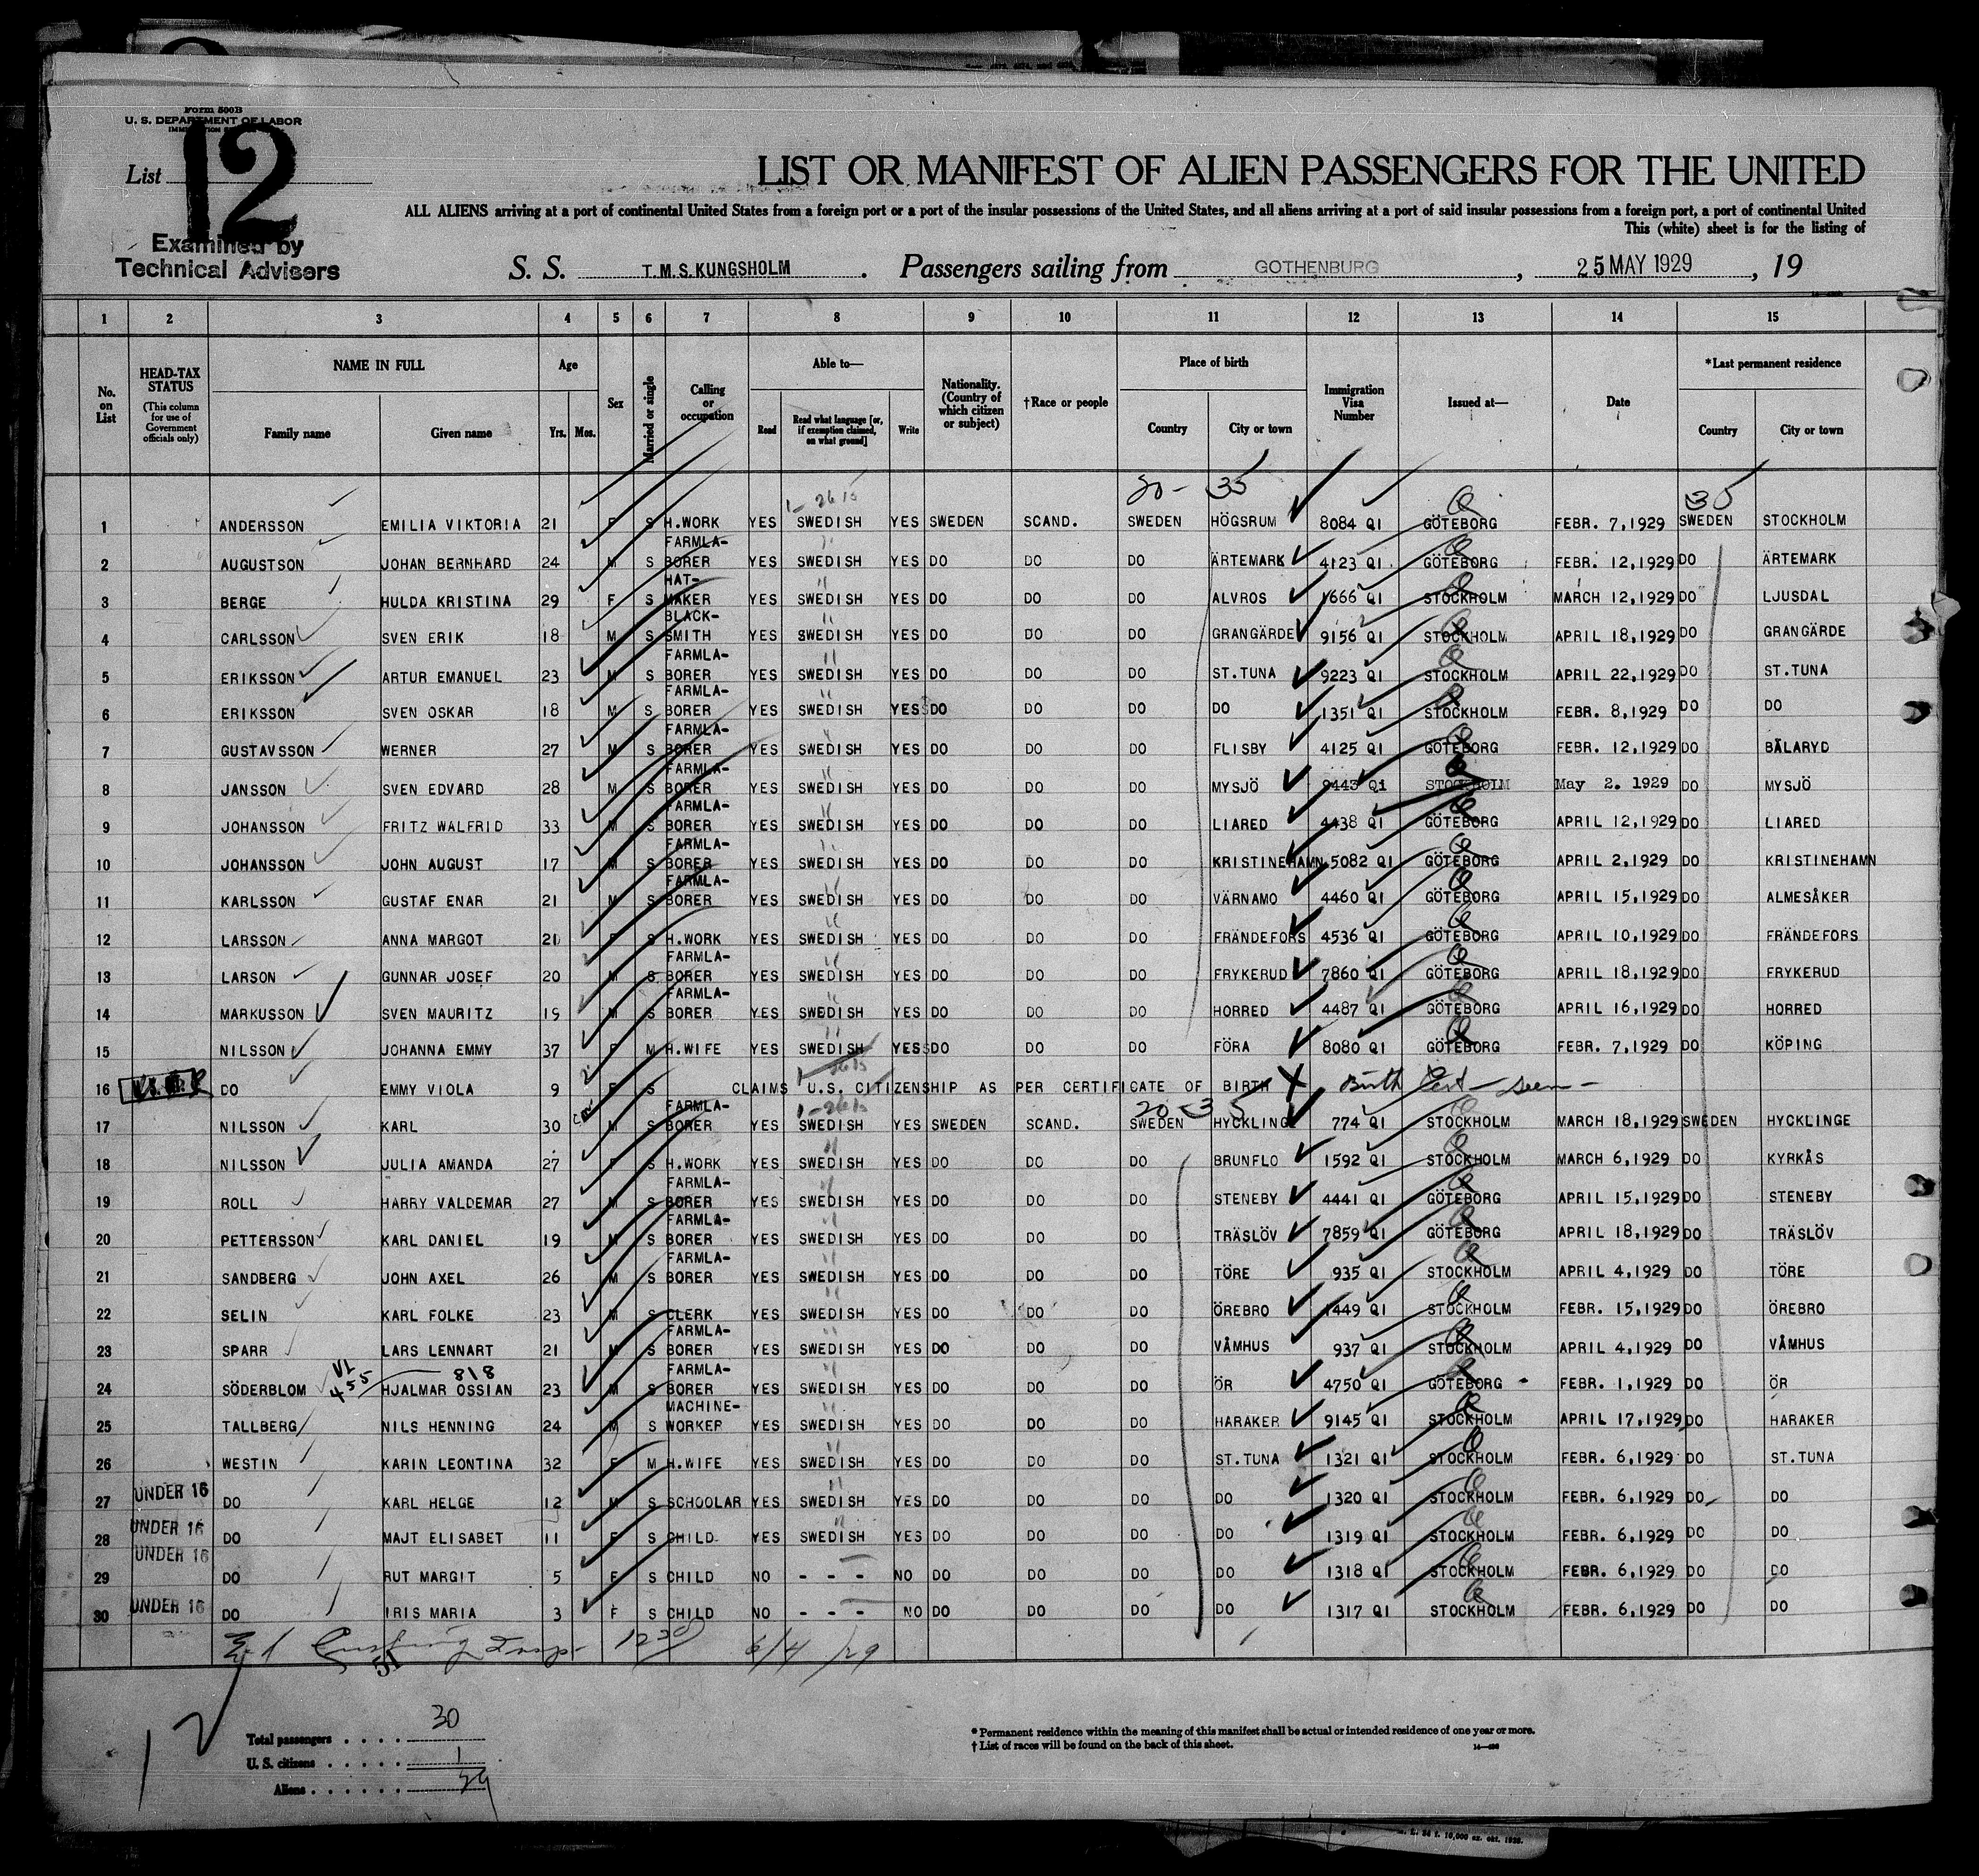 Form 500B
U. S. DEPARTMENT OF LABOR
List 12
LIST OR MANIFEST OF ALIEN PASSENGERS FOR THE UNITED
ALL ALIENS arriving at a port of continental United States from a foreign port or a port of the insular possessions of the United States, and all aliens arriving at a port of said insular possessions from a foreign port, a port of continental United
This (white) sheet is for the listing of
Examined by
Technical Advisers
S. S. T.M.S.KUNGSHOLM . Passengers sailing from GOTHENBURG , 25 MAY 1929 , 19
1 2 3 4 5 6 7 8 9 10 11 12 13 14 15
No. on List
HEAD-TAX STATUS (This column for use of Government officials only)
NAME IN FULL
Family name Given name
Age
Yrs. Mos.
Sex
Married or single
Calling or occupation
Able to—
Read
Read what language [or, if exemption claimed, on what ground]
Write
Nationality. (Country of which citizen or subject)
†Race or people
Place of birth
Country City or town
Immigration Visa Number
Issued at—
Date
*Last permanent residence
Country City or town
20- 35 35
1 ANDERSSON EMILIA VIKTORIA 21 F S H.WORK YES SWEDISH YES SWEDEN SCAND. SWEDEN HÖGSRUM 8084 QI GÖTEBORG FEBR. 7,1929 SWEDEN STOCKHOLM
2 AUGUSTSON JOHAN BERNHARD 24 M S FARMLA-BORER YES SWEDISH YES DO DO DO ÄRTEMARK 4123 QI GÖTEBORG FEBR. 12,1929 DO ÄRTEMARK
3 BERGE HULDA KRISTINA 29 F S HAT-MAKER YES SWEDISH YES DO DO DO ALVROS 1666 QI STOCKHOLM MARCH 12,1929 DO LJUSDAL
4 CARLSSON SVEN ERIK 18 M S BLACK-SMITH YES SWEDISH YES DO DO DO GRANGÄRDE 9156 QI STOCKHOLM APRIL 18,1929 DO GRANGÄRDE
5 ERIKSSON ARTUR EMANUEL 23 M S FARMLA-BORER YES SWEDISH YES DO DO DO ST.TUNA 9223 QI STOCKHOLM APRIL 22,1929 DO ST.TUNA
6 ERIKSSON SVEN OSKAR 18 M S FARMLA-BORER YES SWEDISH YES DO DO DO DO 1351 QI STOCKHOLM FEBR. 8,1929 DO DO
7 GUSTAVSSON WERNER 27 M S FARMLA-BORER YES SWEDISH YES DO DO DO FLISBY 4125 QI GÖTEBORG FEBR. 12,1929 DO BÄLARYD
8 JANSSON SVEN EDVARD 28 M S FARMLA-BORER YES SWEDISH YES DO DO DO MYSJÖ 9443 QI STOCKHOLM May 2. 1929 DO MYSJÖ
9 JOHANSSON FRITZ WALFRID 33 M S FARMLA-BORER YES SWEDISH YES DO DO DO LIARED 4438 QI GÖTEBORG APRIL 12,1929 DO LIARED
10 JOHANSSON JOHN AUGUST 17 M S FARMLA-BORER YES SWEDISH YES DO DO DO KRISTINEHAMN 5082 QI GÖTEBORG APRIL 2,1929 DO KRISTINEHAMN
11 KARLSSON GUSTAF ENAR 21 M S FARMLA-BORER YES SWEDISH YES DO DO DO VÄRNAMO 4460 QI GÖTEBORG APRIL 15,1929 DO ALMESÅKER
12 LARSSON ANNA MARGOT 21 F S H.WORK YES SWEDISH YES DO DO DO FRÄNDEFORS 4536 QI GÖTEBORG APRIL 10,1929 DO FRÄNDEFORS
13 LARSON GUNNAR JOSEF 20 M S FARMLA-BORER YES SWEDISH YES DO DO DO FRYKERUD 7860 QI GÖTEBORG APRIL 18,1929 DO FRYKERUD
14 MARKUSSON SVEN MAURITZ 19 M S FARMLA-BORER YES SWEDISH YES DO DO DO HORRED 4487 QI GÖTEBORG APRIL 16,1929 DO HORRED
15 NILSSON JOHANNA EMMY 37 F M H.WIFE YES SWEDISH YES DO DO DO FÖRA 8080 QI GÖTEBORG FEBR. 7,1929 DO KÖPING
16 DO EMMY VIOLA 9 F S CLAIMS U.S. CITIZENSHIP AS PER CERTIFICATE OF BIRTH X Birth Cert - seen -
20 35
17 NILSSON KARL 30 M S FARMLA-BORER YES SWEDISH YES SWEDEN SCAND. SWEDEN HYCKLINGE 774 QI STOCKHOLM MARCH 18,1929 SWEDEN HYCKLINGE
18 NILSSON JULIA AMANDA 27 F S H.WORK YES SWEDISH YES DO DO DO BRUNFLO 1592 QI STOCKHOLM MARCH 6,1929 DO KYRKÅS
19 ROLL HARRY VALDEMAR 27 M S FARMLA-BORER YES SWEDISH YES DO DO DO STENEBY 4441 QI GÖTEBORG APRIL 15,1929 DO STENEBY
20 PETTERSSON KARL DANIEL 19 M S FARMLA-BORER YES SWEDISH YES DO DO DO TRÄSLÖV 7859 QI GÖTEBORG APRIL 18,1929 DO TRÄSLÖV
21 SANDBERG JOHN AXEL 26 M S FARMLA-BORER YES SWEDISH YES DO DO DO TÖRE 935 QI STOCKHOLM APRIL 4,1929 DO TÖRE
22 SELIN KARL FOLKE 23 M S CLERK YES SWEDISH YES DO DO DO ÖREBRO 1449 QI STOCKHOLM FEBR. 15,1929 DO ÖREBRO
23 SPARR LARS LENNART 21 M S FARMLA-BORER YES SWEDISH YES DO DO DO VÅMHUS 937 QI STOCKHOLM APRIL 4,1929 DO VÅMHUS
VL 455 818
24 SÖDERBLOM HJALMAR OSSIAN 23 M S FARMLA-BORER YES SWEDISH YES DO DO DO ÖR 4750 QI GÖTEBORG FEBR. 1,1929 DO ÖR
25 TALLBERG NILS HENNING 24 M S MACHINE-WORKER YES SWEDISH YES DO DO DO HARAKER 9145 QI STOCKHOLM APRIL 17,1929 DO HARAKER
26 WESTIN KARIN LEONTINA 32 F M H.WIFE YES SWEDISH YES DO DO DO ST.TUNA 1321 QI STOCKHOLM FEBR. 6,1929 DO ST.TUNA
27 UNDER 16 DO KARL HELGE 12 M S SCHOOLAR YES SWEDISH YES DO DO DO DO 1320 QI STOCKHOLM FEBR. 6,1929 DO DO
28 UNDER 16 DO MAJT ELISABET 11 F S CHILD YES SWEDISH YES DO DO DO DO 1319 QI STOCKHOLM FEBR. 6,1929 DO DO
29 UNDER 16 DO RUT MARGIT 5 F S CHILD NO - - - NO DO DO DO DO 1318 QI STOCKHOLM FEBR. 6,1929 DO DO
30 UNDER 16 DO IRIS MARIA 3 F S CHILD NO - - - NO DO DO DO DO 1317 QI STOCKHOLM FEBR. 6,1929 DO DO
1230 6/4/29
51
Total passengers . . . . 30
U. S. citizens . . . . . 1
Aliens . . . . . . 29
* Permanent residence within the meaning of this manifest shall be actual or intended residence of one year or more.
† List of races will be found on the back of this sheet.